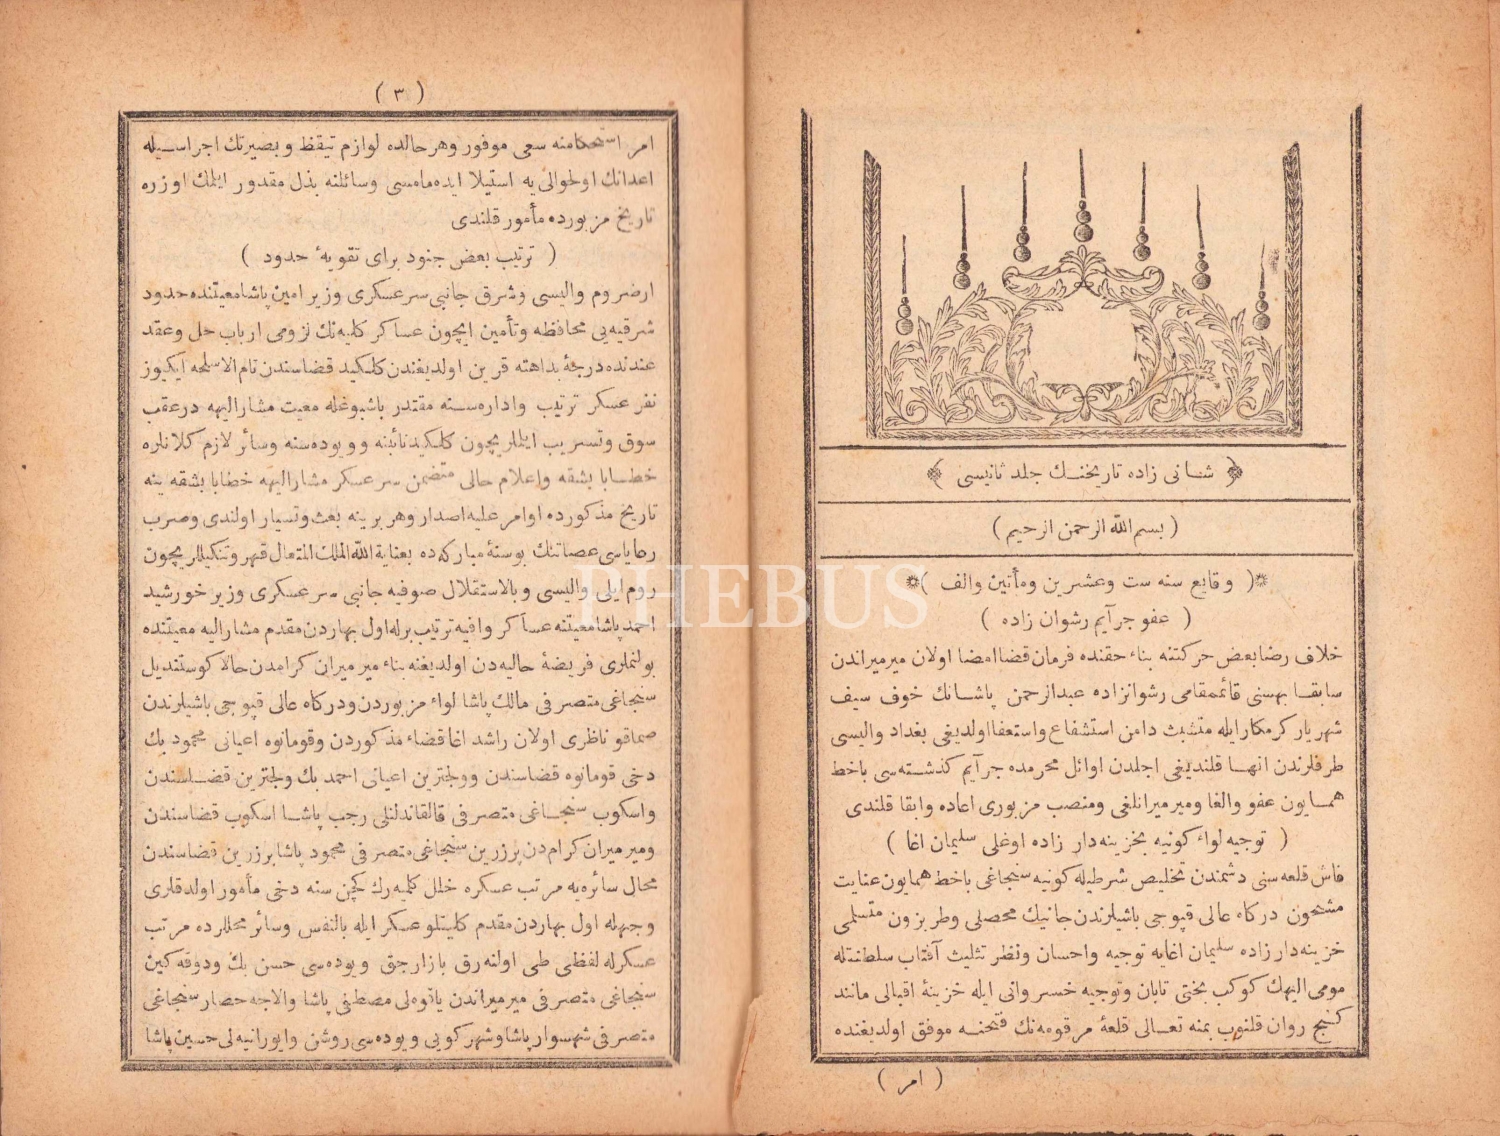 ﴿ شانی زاده تاریخنك جلد ثانیسی ﴾
( بسم الله الرحمن الرحیم )
( وقایع سنه ست وعشرین ومأتین والف )
( عفو جرآیم رشوان زاده )
خلاف رضا بعض حرکتنه بناء حقنده فرمان قضا امضا اولان میرمیراندن
سابقا بهسنی قائممقامی رشوانزاده عبدالرحمن پاشانك خوف سیف
شهریار کرمکار ایله متشبث دامن استشفاع واستعفا اولدیغی بغداد والیسی
طرفلرندن انها قلندیغی اجلدن اوائل محرمده جرآیم کذشته سی باخط
همایون عفو والغا ومیرمیرانلغی ومنصب مزبوری اعاده وابقا قلندی
( توجیه لواء کونیه بخزینه دار زاده اوغلی سلیمان اغا )
فاش قلعه سنی دشمندن تخلیص شرطیله کونیه سنجاغی باخط همایون عنایت
مشحون درکاه عالی قپوجی باشیلرندن جانیك محصلی وطربزون متسلمی
خزینه دار زاده سلیمان اغایه توجیه واحسان ونظر تثلیث آفتاب سلطنتله
مومی الیهك کوکب بختی تابان وتوجیه خسروانی ایله خزینهٔ اقبالی مانند
کنج روان قلنوب بمنه تعالی قلعهٔ مرقومه نك فتحنه موفق اولدیغنده
( امر )
( ٣ )
امر استحکامنه سعی موفور وهر حالده لوازم تیقظ وبصیرتك اجراسیله
اعدانك اولحوالی یه استیلا ایده مامسی وسائلنه بذل مقدور ایلمك اوزره
تاریخ مزبورده مأمور قلندی
( ترتیب بعض جنود برای تقویهٔ حدود )
ارضروم والیسی وشرق جانبی سرعسکری وزیر امین پاشا معیتنده حدود
شرقیه یی محافظه وتأمین ایچون عساکر کلیه نك لزومی ارباب حل وعقد
عندنده درجهٔ بداهته قرین اولدیغندن کلکید قضاسندن تام الاسلحه ایکیوز
نفر عسکر ترتیب واداره سنه مقتدر باشبوغله معیت مشار الیهه درعقب
سوق وتسریب ایللریچون کلکید نائبنه وویوده سنه وسائر لازم کلانلره
خطابا بشقه واعلام حالی متضمن سرعسکر مشار الیهه خطابا بشقه ینه
تاریخ مذکورده اوامر علیه اصدار وهر برینه بعث وتسیار اولندی وصرب
رعایاسی عصاتنك بوسنهٔ مبارکه ده بعنایة الله الملك المتعال قهر وتنکیللریچون
روم ایلی والیسی وبالاستقلال صوفیه جانبی سرعسکری وزیر خورشید
احمد پاشا معیتنه عساکر وافیه ترتیب برله اول بهاردن مقدم مشار الیه معیتنده
بولنملری فریضهٔ حالیه دن اولدیغنه بناء میرمیران کرامدن حالا کوستندیل
سنجاغی متصرفی مالك پاشا لواء مزبوردن ودرکاه عالی قپوجی باشیلرندن
صماقو ناظری اولان راشد اغا قضاء مذکوردن وقومانوه اعیانی محمود بك
دخی قومانوه قضاسندن وولجترین اعیانی احمد بك ولجترین قضاسندن
واسکوب سنجاغی متصرفی قالقاندلنلی رجب پاشا اسکوب قضاسندن
ومیرمیران کرام دن پرزرین سنجاغی متصرفی محمود پاشا پرزرین قضاسندن
محال سائره یه مرتب عسکره خلل کلمیه رك کچن سنه دخی مأمور اولدقلری
وجهله اول بهاردن مقدم کلیتلو عسکر ایله بالنفس وسائر محللرده مرتب
عسکرله لفظی طی اولنه رق بازارجق ویوده سی حسن بك ودوقه کین
سنجاغی متصرفی میرمیراندن یانوه لی مصطفی پاشا والاجه حصار سنجاغی
متصرفی شهسوار پاشا وشهرکویی ویوده سی روشن وایورانیه لی حسین پاشا
PHEBUS